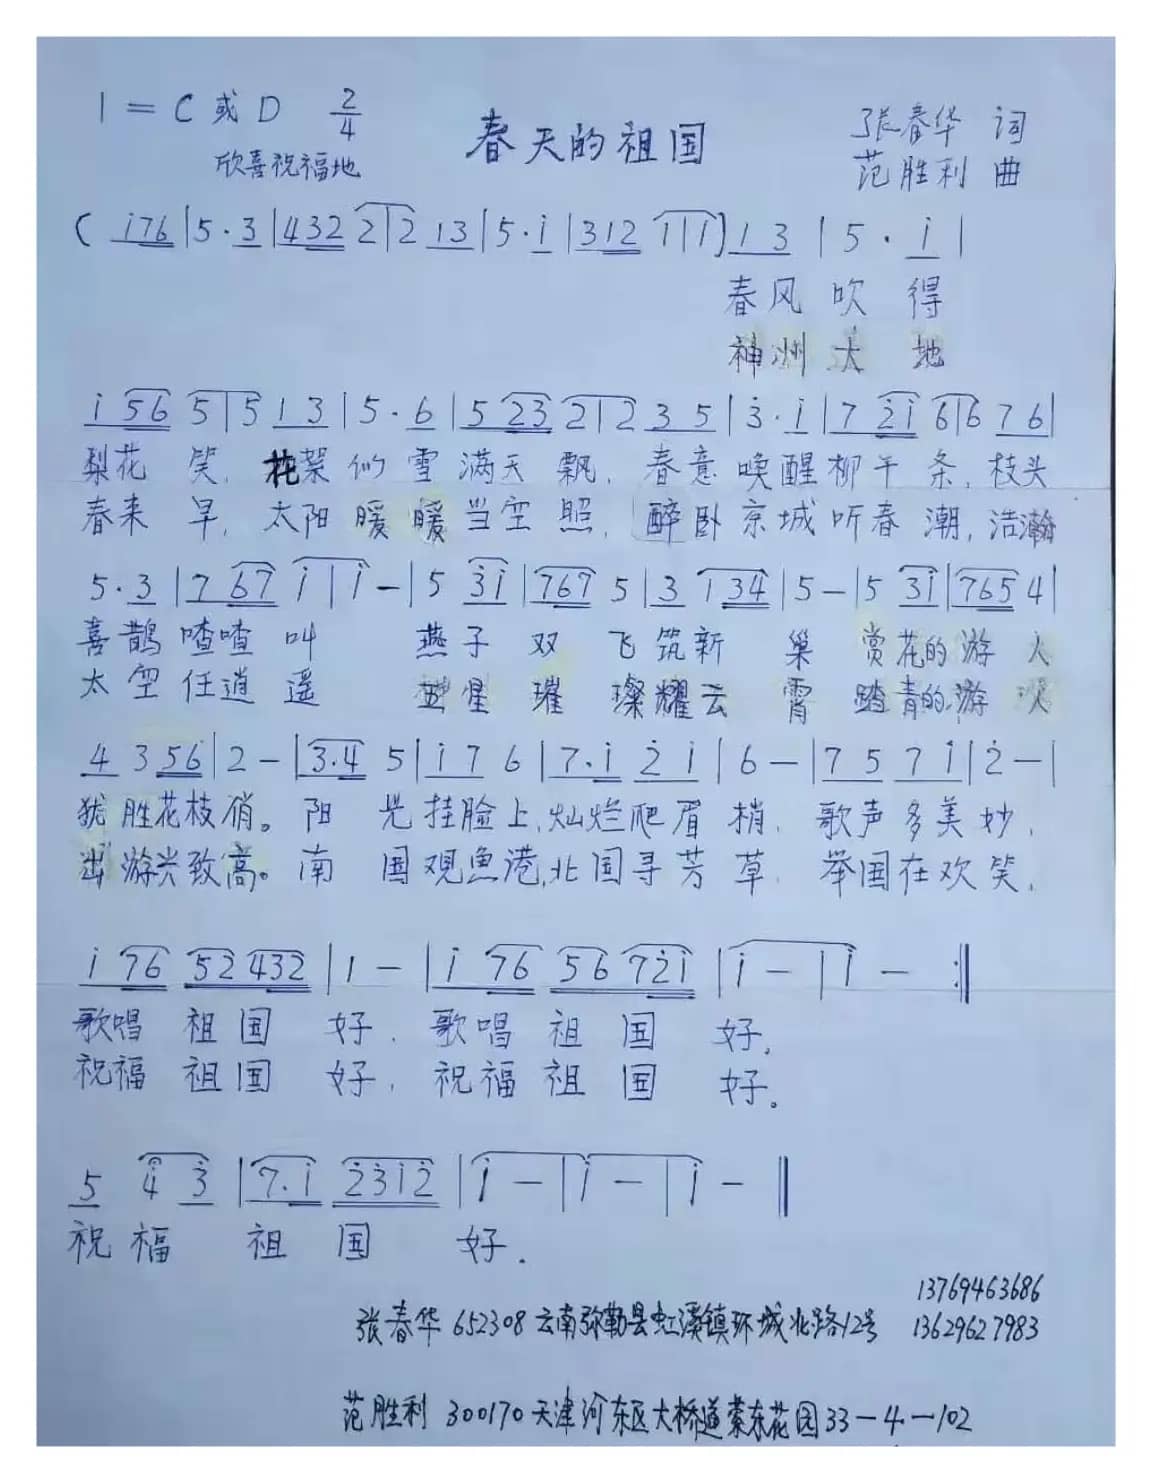 1=C或D 2/4
春天的祖国
张春华 词
欣喜祝福地
范胜利 曲
( i76|5·3|432 2|2 13|5·i|312 i|i)13|5·i|
春风吹得
神洲大地
i 56 5|5 13|5·6|5 23 2|2 35|3·i|7 2i 6|6 76|
梨花笑，花絮似雪满天飘，春意唤醒柳千条，枝头
春来早，太阳暖暖当空照，醉卧京城听春潮，浩瀚
5·3|7 67 i|i-|5 3i|767 5|3 134|5-|5 3i|765 4|
喜鹊喳喳叫 燕子双飞筑新巢 赏花的游人
太空任逍遥 星璀璨耀云霄 踏青的游
4 3 56|2-|3·4 5|i 7 6|7·i 2 i|6-|7 5 7 i|2-|
犹胜花枝俏。阳光挂脸上，灿烂爬眉梢，歌声多美妙，
出游兴致高。南国观鱼港，北国寻芳草，举国在欢笑，
i 76 52 432|1-|i 76 56 72i|i-|i-:‖
歌唱祖国好，歌唱祖国好，
祝福祖国好，祝福祖国好。
5 4 3|7·i 2312|i-|i-|i-‖
祝福祖国好．
13769463686
张春华 652308 云南弥勒县虹溪镇环城北路12号 13629627983
范胜利 300170 天津河东区大桥道东花园33-4-102